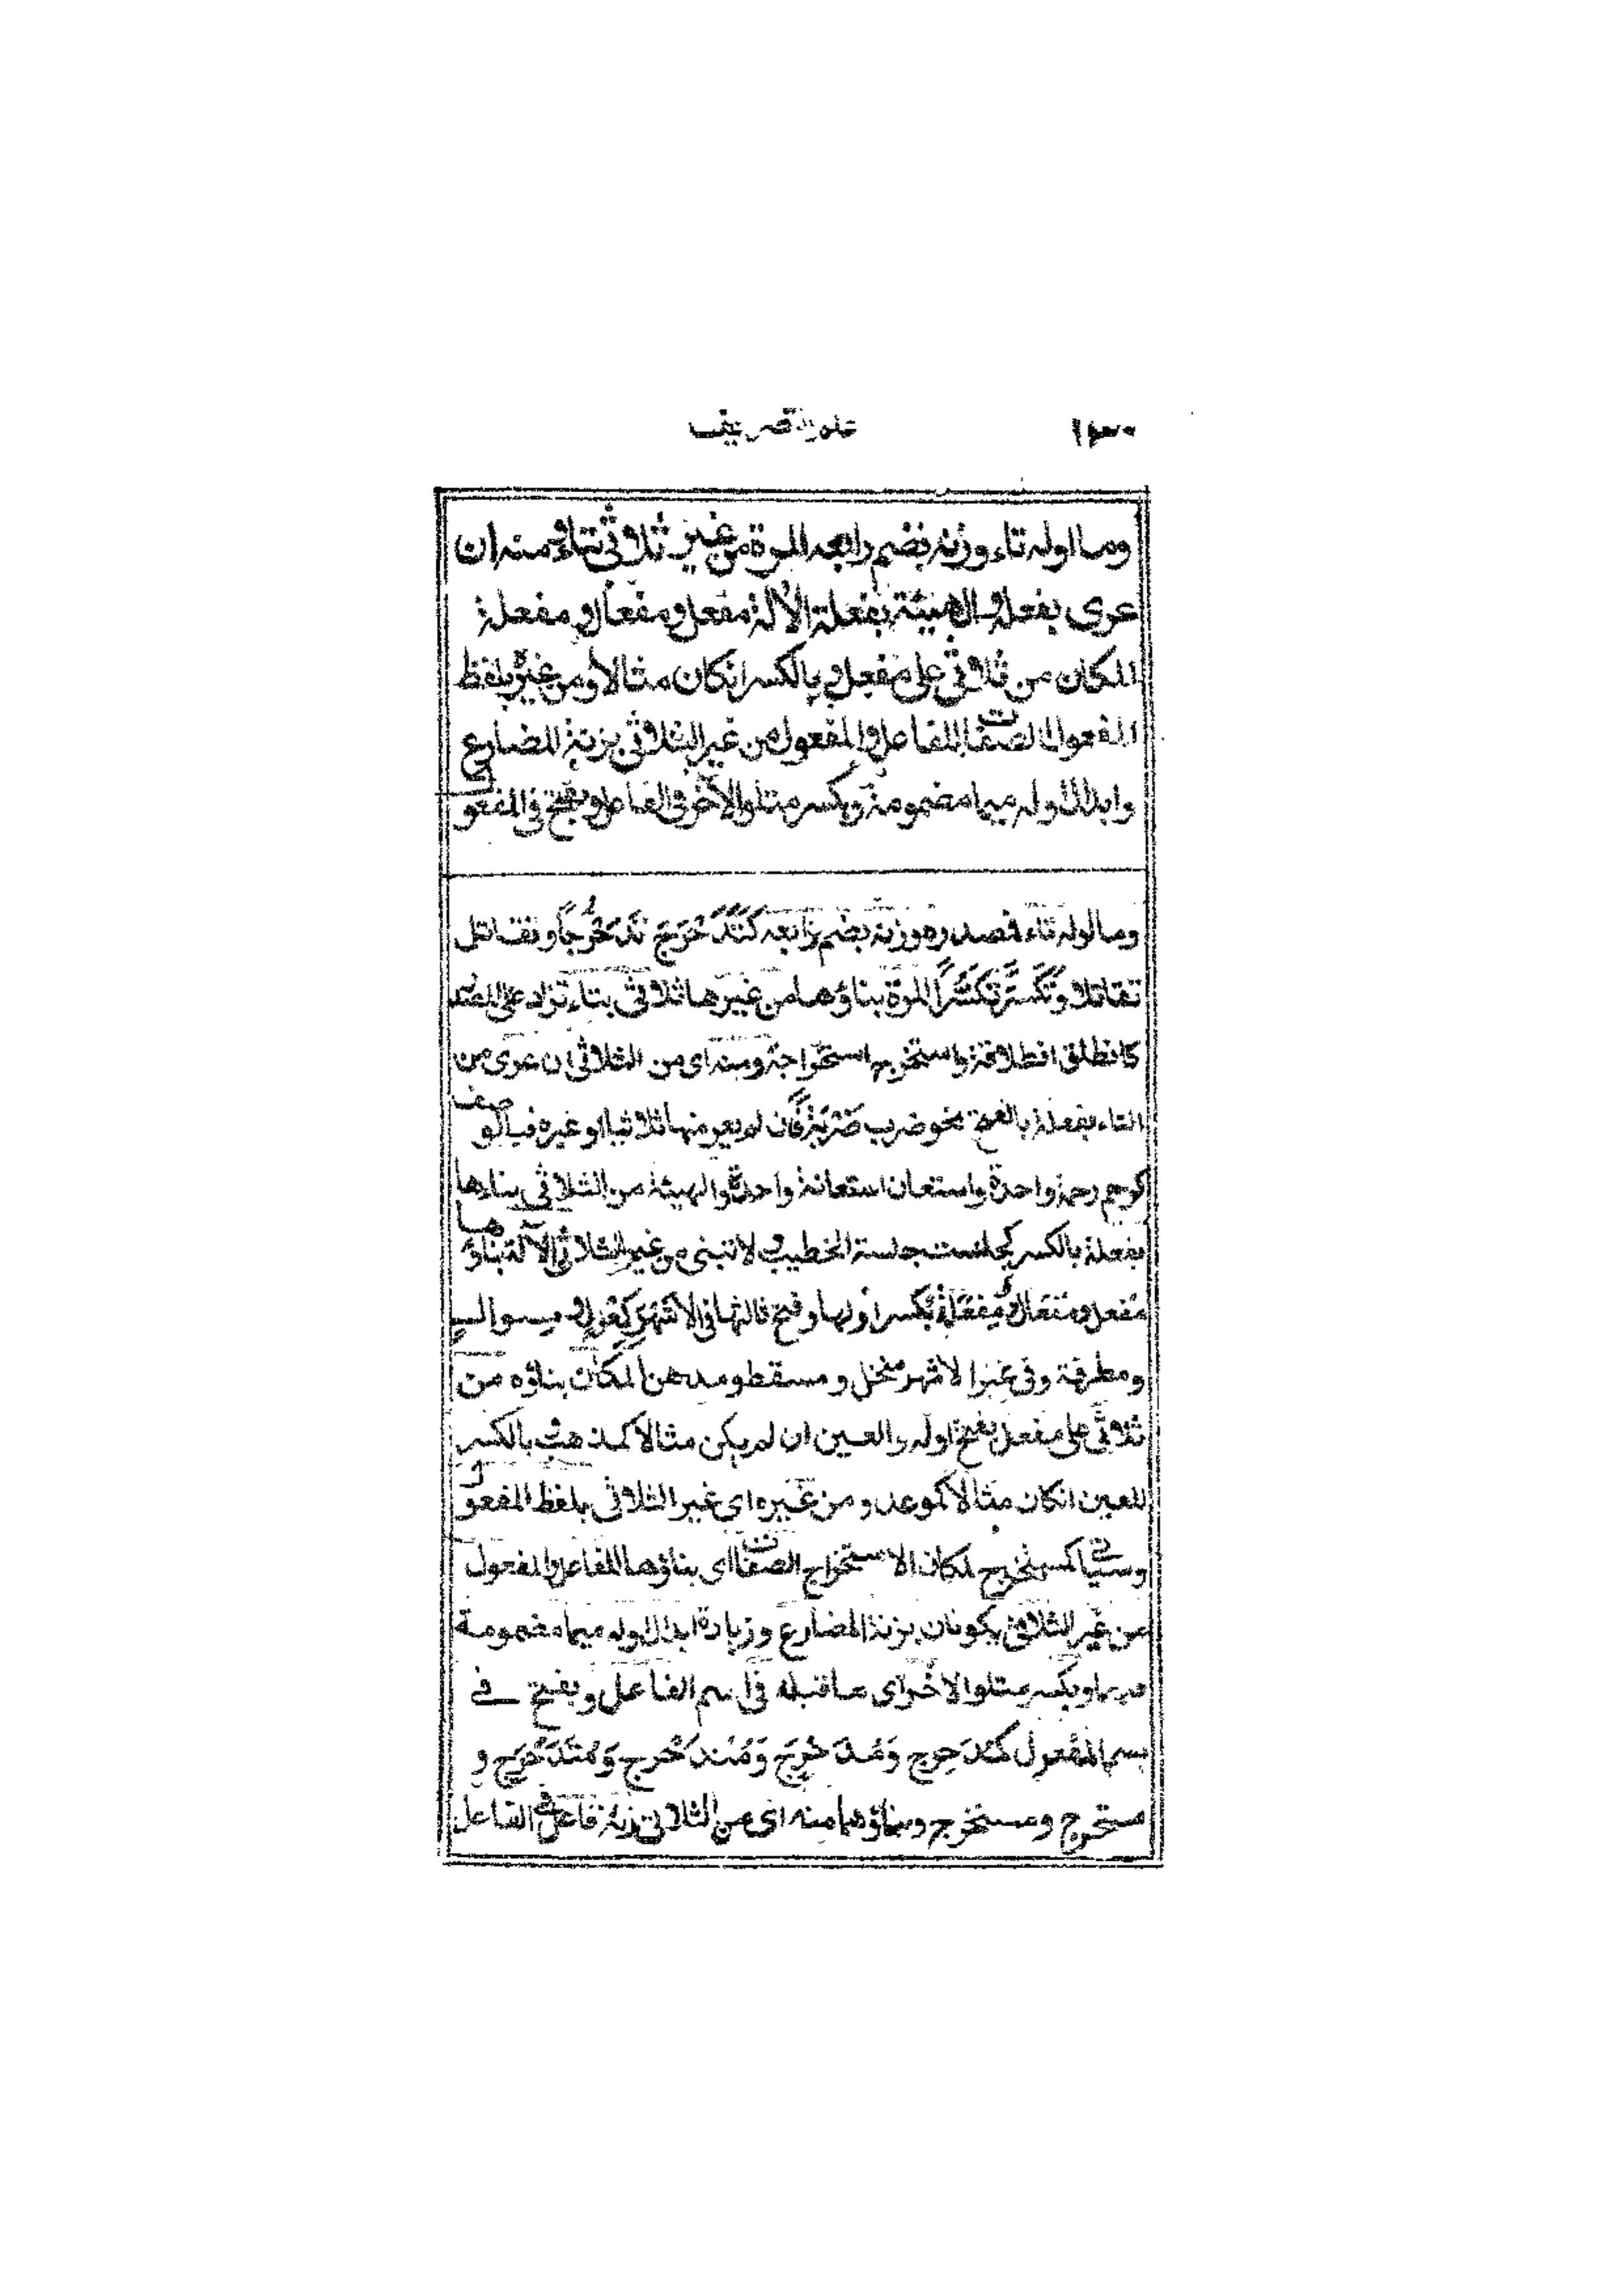 ١٣٠ علم التصريف
وما اوله تاء وزنه بضم رابعه المرة من غير ثلاثي بتاء ومنه ان
عرى بفعلة والهيئة بفعلة الآلة مفعل ومفعال ومفعلة
المكان من ثلاثي على مفعل وبالكسر انكان مثالا ومن غيره بلفظ
المفعول الصفات للفاعل والمفعول من غير الثلاثي بزنة المضارع
وابدال اوله ميما مضمومة ويكسر متلو الآخر في الفاعل ويفتح في المفعول
وما اوله تاء فمصدره وزنه بضم رابعه كَتَدَحْرَجَ تَدَحْرُجاً وتقاتل
تقاتلا وتَكَسَّرَ تَكَسُّراً المرة بناؤها من غير ها ثلاثي بتاء تزاد على المصدر
كانطلق انطلاقة واستخرج استخراجة ومنه اى من الثلاثي ان عرى من
التاء بفعلة بالفتح نحو ضرب ضَرْبَةً فان لم يعر منها ثلاثيا او غيره فبالوصف
كرحم رحمة واحدة واستعان استعانة واحدة والهيئة من الثلاثي بناءها
بفعلة بالكسر كجلست جلسة الخطيب ولا تبنى من غير الثلاثي الآلة بناؤها
مفعل ومفعال ومفعلة بكسر اولها وفتح ثالثها في الاشهر كمغزل ومسواك
ومطرقة وفي غير الاشهر منخل ومسقط ومدهن المكان بناؤه من
ثلاثي على مفعل بفتح اوله والعين ان لم يكن مثالا كمذهب وبالكسر
للعين انكان مثالا كموعد ومن غيره اى غير الثلاثي بلفظ المفعول
وسيأتي كمستخرج لمكان الاستخراج الصفات اى بناؤها للفاعل والمفعول
من غير الثلاثي يكونان بزنة المضارع وزيادة ابدال اوله ميما مضمومة
فيهما ويكسر متلو الاخر اى ما قبله في اسم الفاعل ويفتح في
اسم المفعول كمُدَحرِج وَمُدَحْرَج وَمُتَدَحْرِج وَمُتَدَحْرَج و
مستخرج ومستخرج وبناؤهما منه اى من الثلاثي زنة فاعل في الفاعل